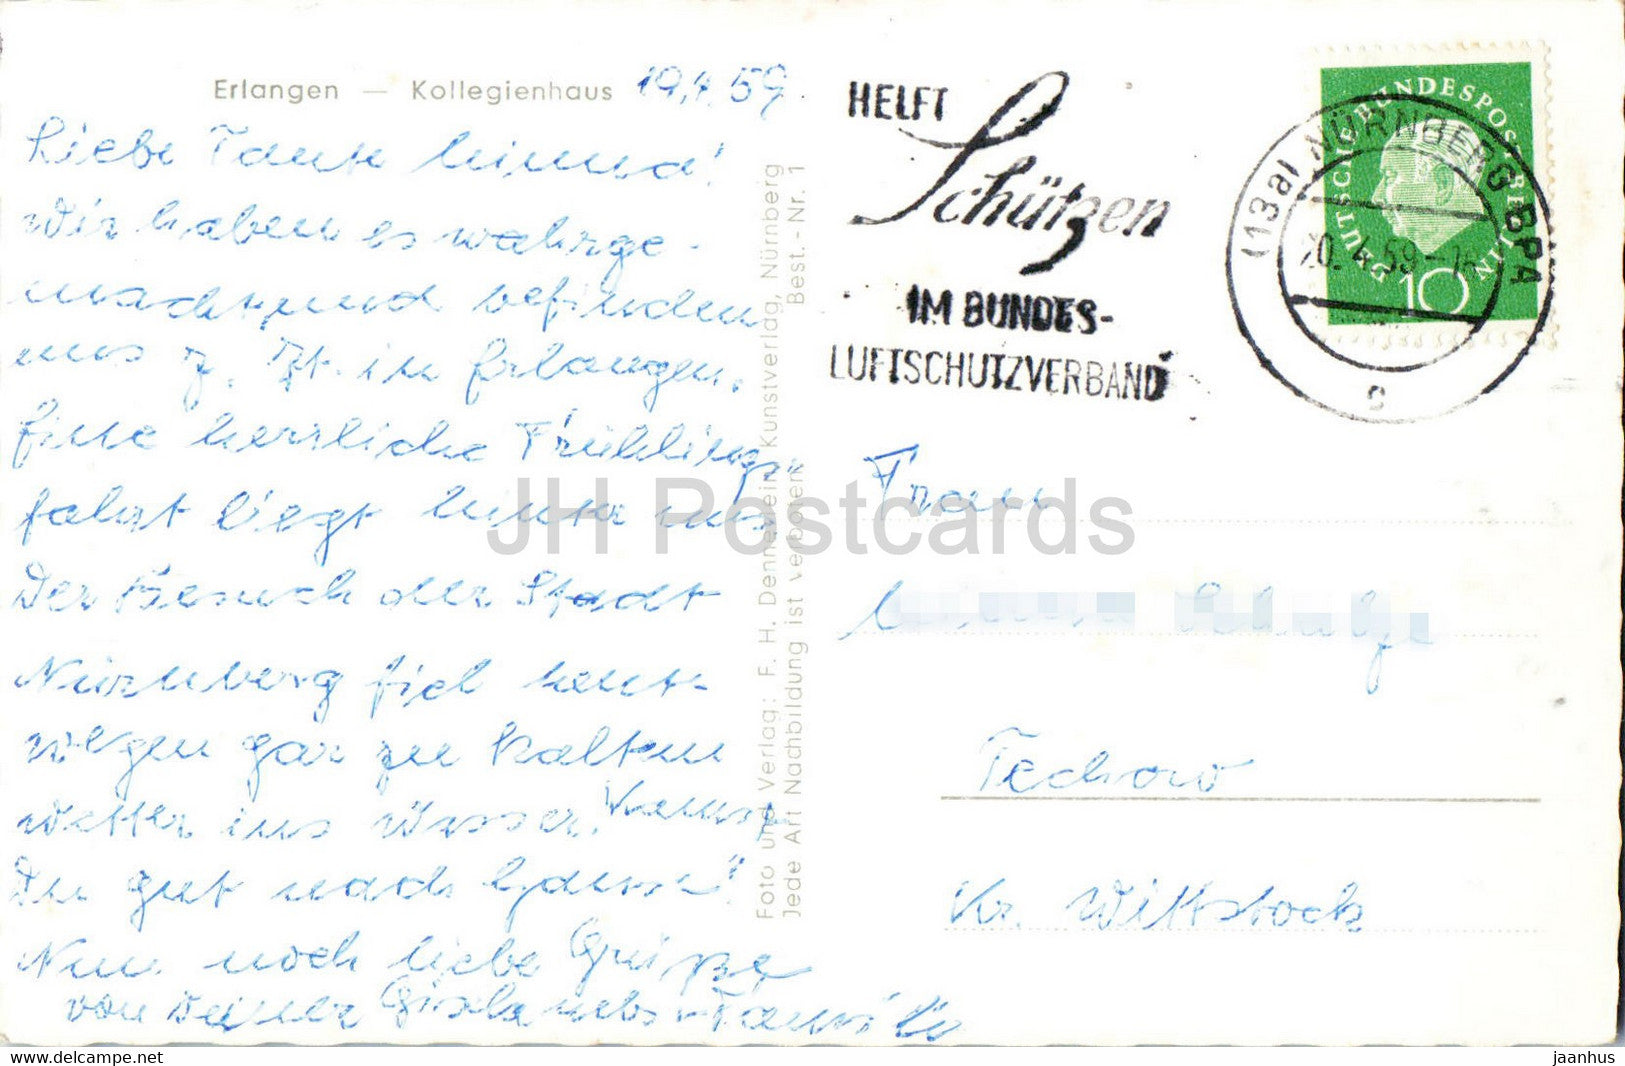 Erlangen — Kollegienhaus 19.4.59
Liebe Tante Minna!
Wir haben es wahrge-
macht und befinden
uns z. Zt. in Erlangen.
Eine herrliche Frühlings
fahrt liegt hinter uns
Der Besuch der Stadt
Nürnberg fiel heut
wegen gar zu kaltem
Wetter ins Wasser.
Du gut nach Hause!
Nun noch liebe Grüße
von Deiner
Foto und Verlag: F. H. Dennerlein, Kunstverlag, Nürnberg
Jede Art Nachbildung ist verboten Best.-Nr. 1
HELFT
Schützen
IM BUNDES-
LUFTSCHUTZVERBAND
(13a) NÜRNBERG BPA
20.4.59-16
c
DEUTSCHE BUNDESPOST BERLIN
10
Frau
Techow
Kr. Wittstock
JH Postcards
www.delcampe.net
jaanhus